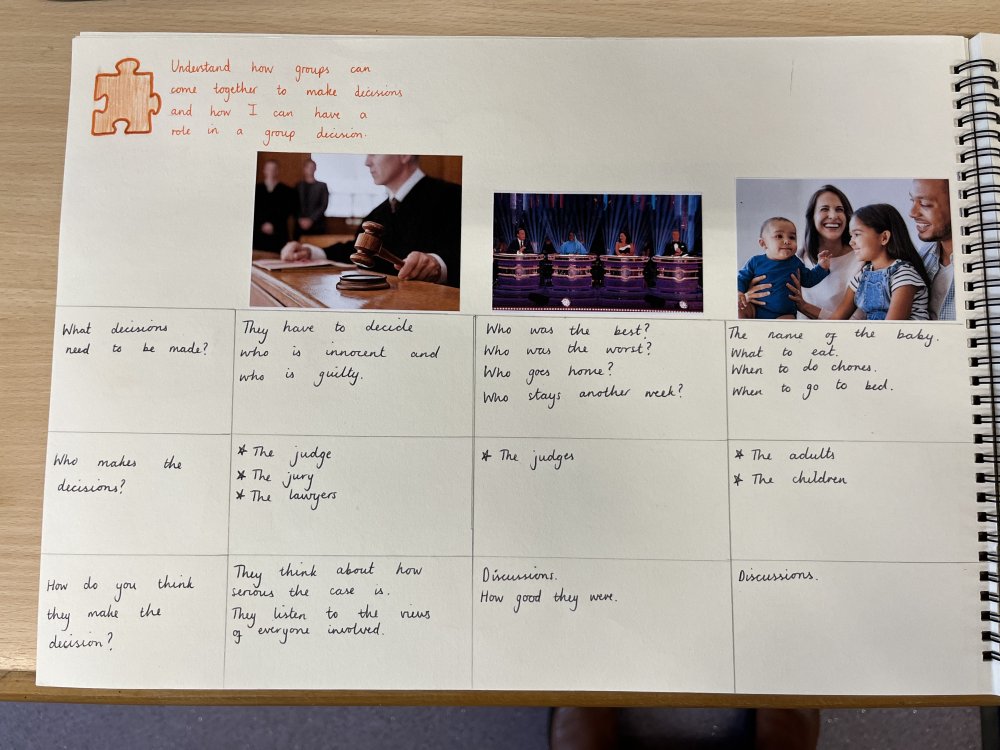 Understand how groups can
come together to make decisions
and how I can have a
role in a group decision.
What decisions
need to be made?
They have to decide
who is innocent and
who is guilty.
Who was the best?
Who was the worst?
Who goes home?
Who stays another week?
The name of the baby.
What to eat.
When to do chores.
When to go to bed.
Who makes the
decisions?
* The judge
* The jury
* The lawyers
* The judges
* The adults
* The children
How do you think
they make the
decision?
They think about how
serious the case is.
They listen to the views
of everyone involved.
Discussions.
How good they were.
Discussions.